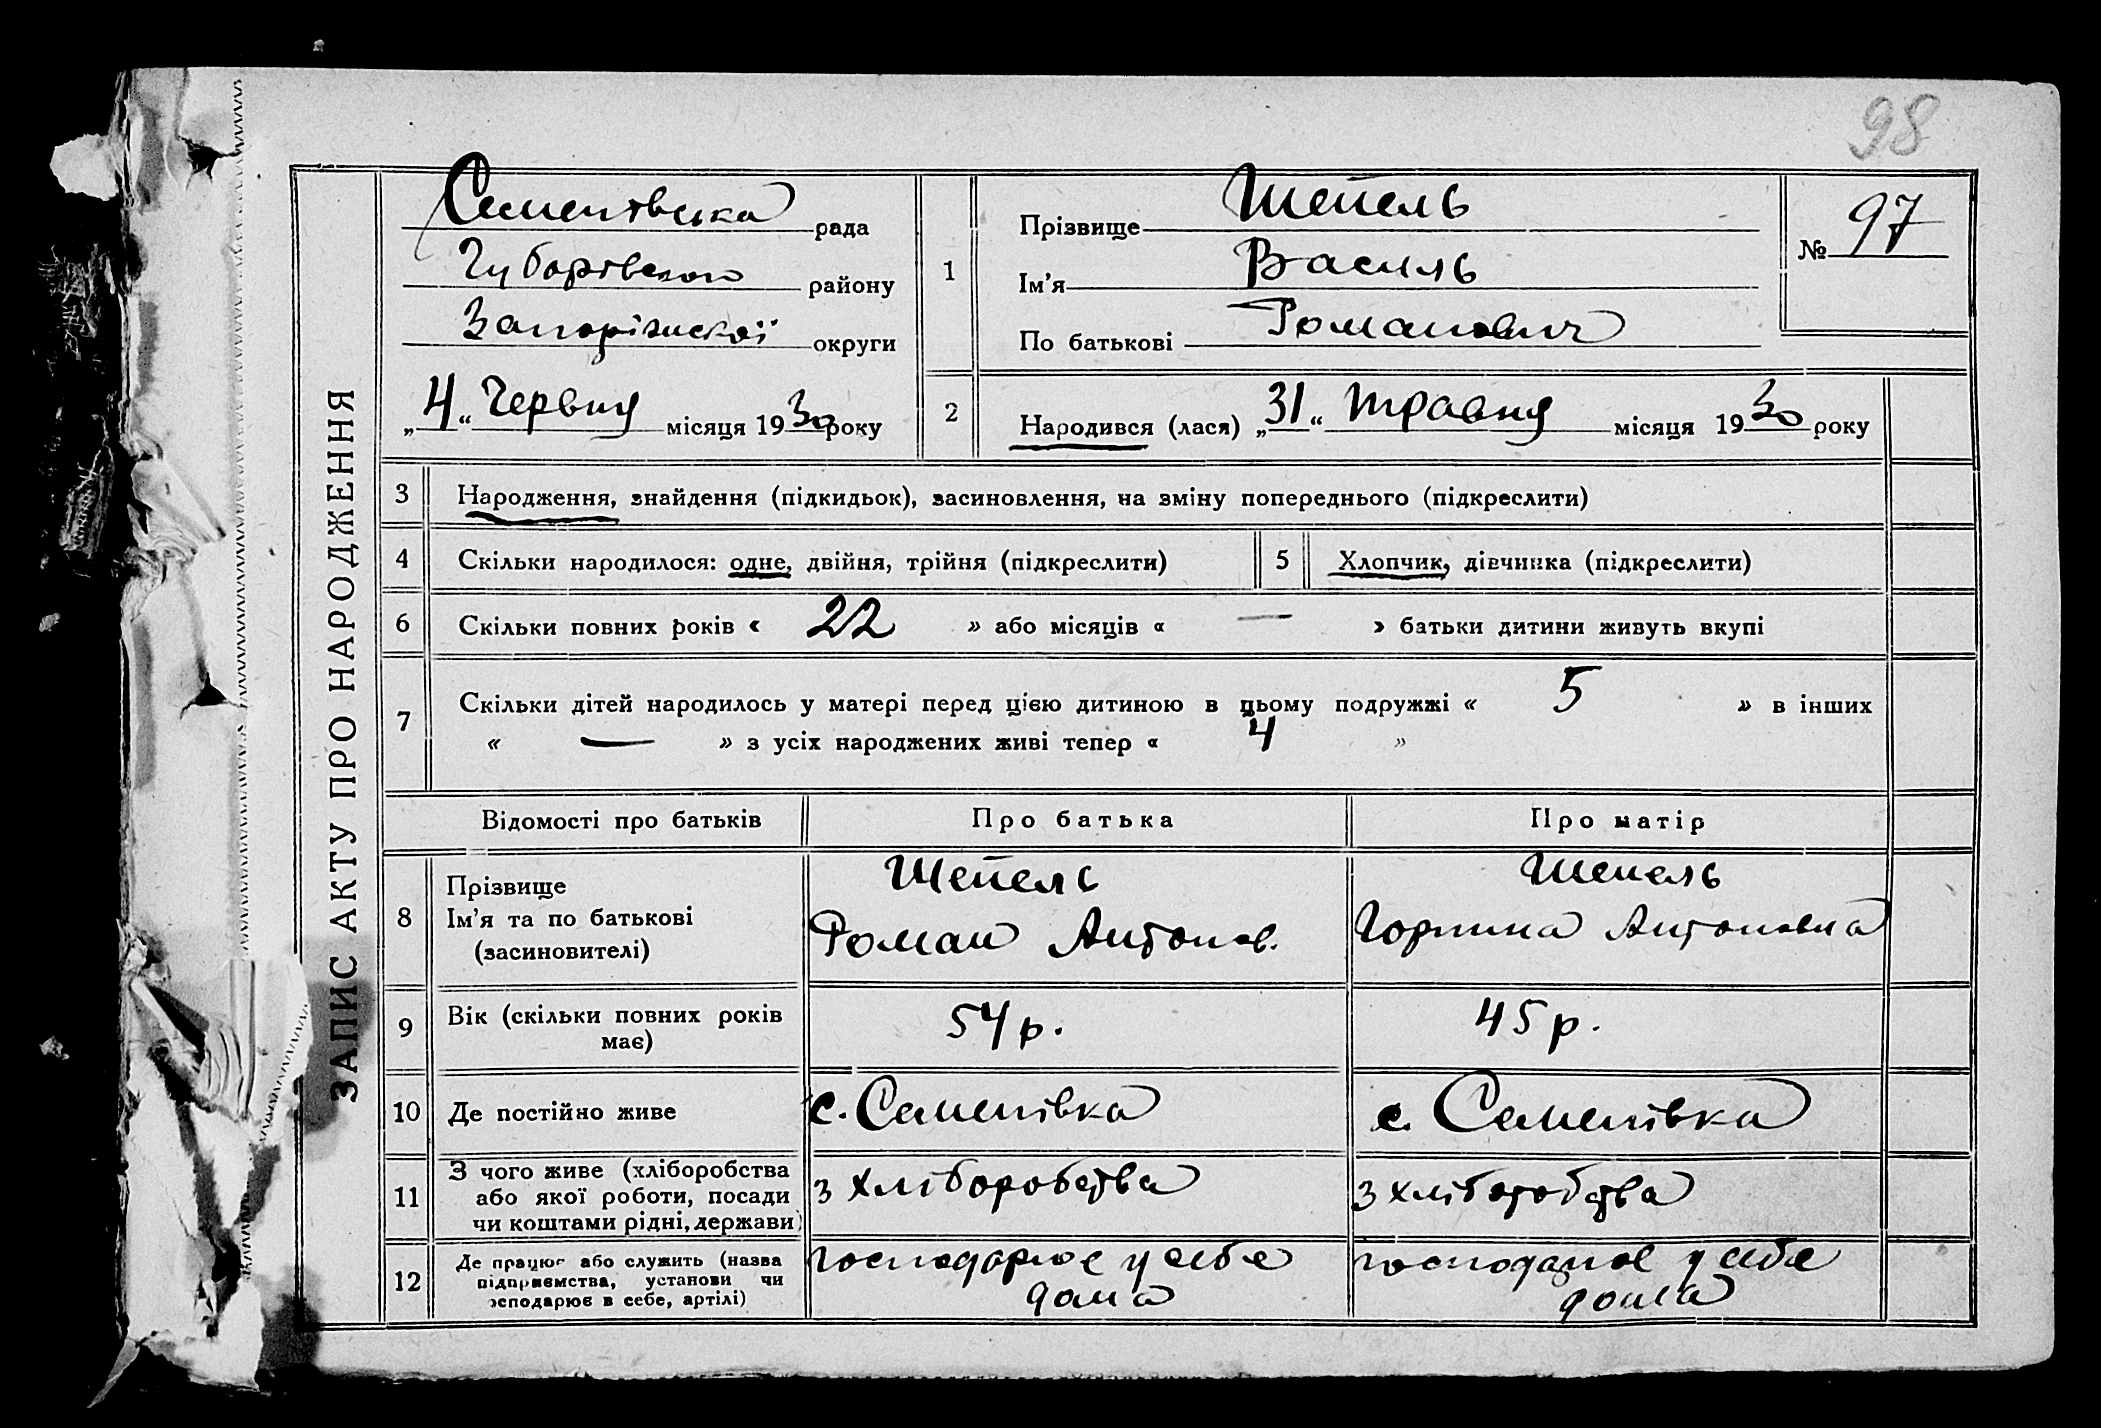 98
ЗАПИС АКТУ ПРО НАРОДЖЕННЯ
Семенівська рада
району
Запоріжської округи
„4“ Червня місяця 1930 року
1
Прізвище Шепель
Ім'я Василь
По батькові Романович
№ 97
2
Народився (лася) „31“ травня місяця 1930 року
3 Народження, знайдення (підкидьок), засиновлення, на зміну попереднього (підкреслити)
4 Скільки народилося: одне, двійня, трійня (підкреслити)
5 Хлопчик, дівчинка (підкреслити)
6 Скільки повних років « 22 » або місяців « — » батьки дитини живуть вкупі
7 Скільки дітей народилось у матері перед цією дитиною в цьому подружжі « 5 » в інших
« — » з усіх народжених живі тепер « 4 »
Відомості про батьків Про батька Про матір
8
Прізвище
Ім'я та по батькові
(засиновителі)
Шепель
Роман Антонов.
Шепель
Горпина Антоновна
9
Вік (скільки повних років
має)
54 р.
45 р.
10 Де постійно живе
с. Семенівка
с. Семенівка
11
З чого живе (хліборобства
або якої роботи, посади
чи коштами рідні, держави)
з хліборобства
з хліборобства
12
Де працює або служить (назва
підприємства, установи чи
господарює в себе, артілі)
господарює у себе
дома
господарює у себе
дома